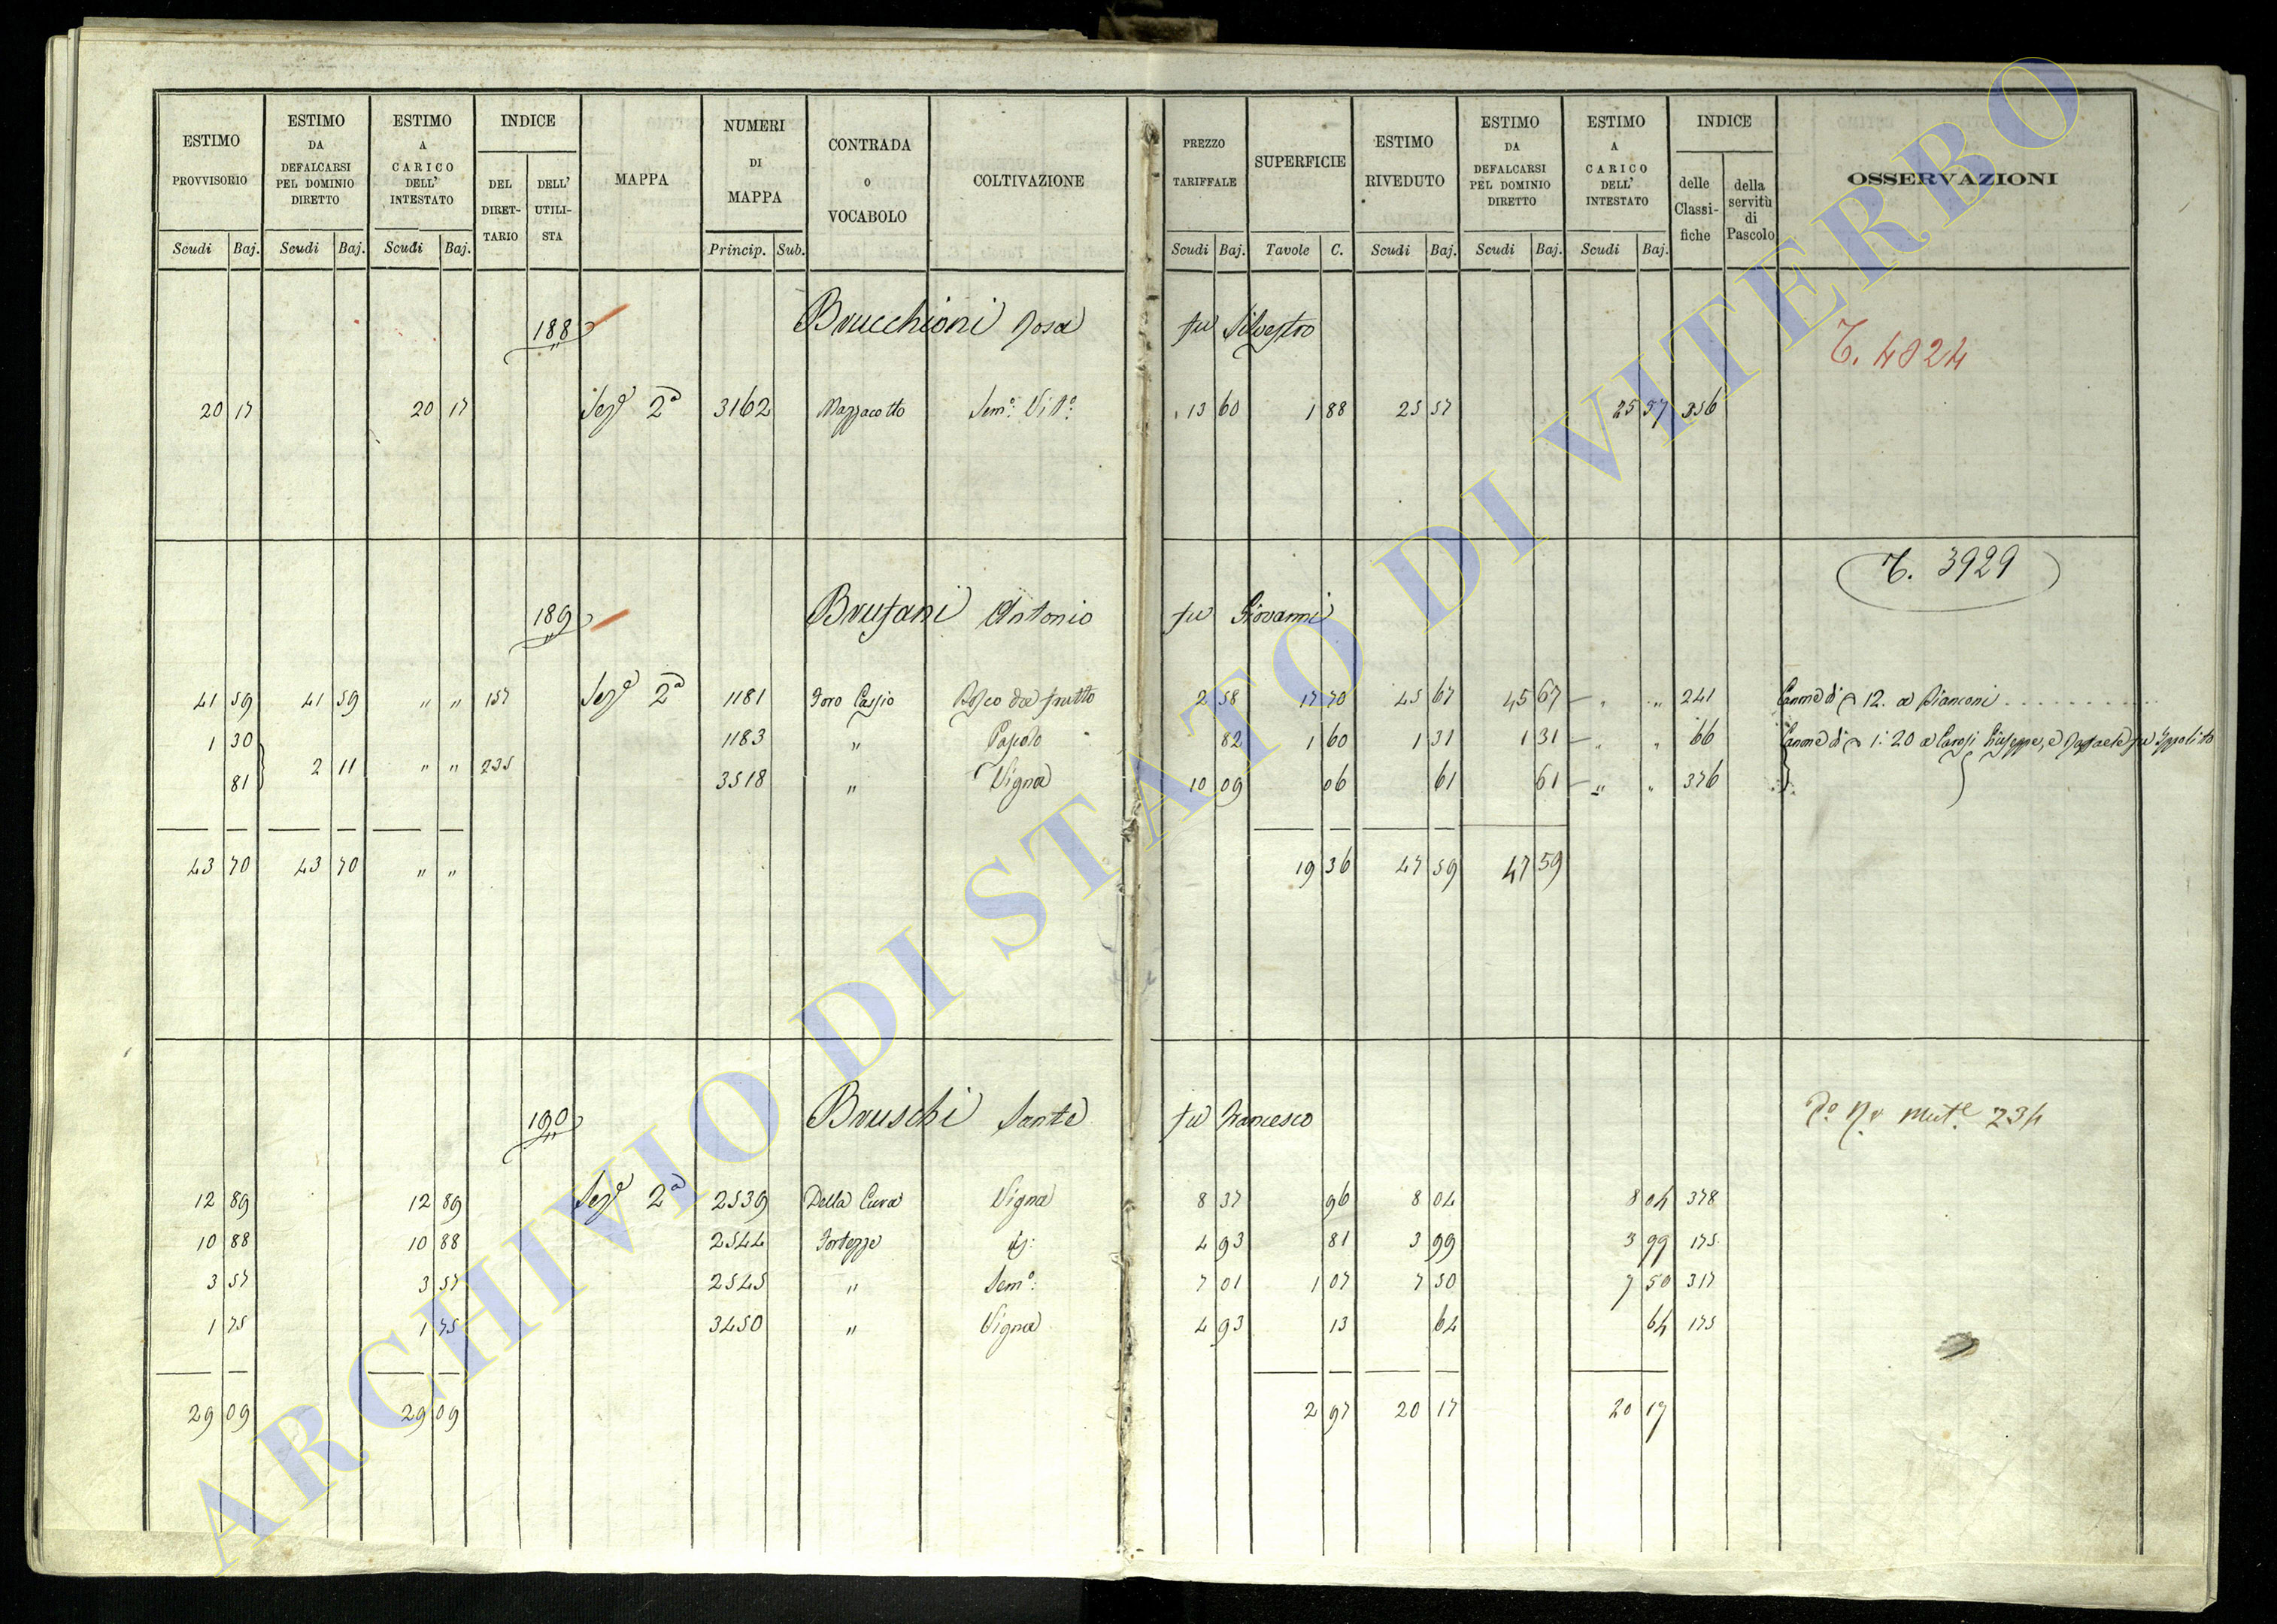 ESTIMO PROVVISORIO Scudi Baj.
ESTIMO DA DEFALCARSI PEL DOMINIO DIRETTO Scudi Baj.
ESTIMO A CARICO DELL' INTESTATO Scudi Baj.
INDICE DEL DIRET- TARIO DELL' UTILI- STA
MAPPA
NUMERI DI MAPPA Princip. Sub.
CONTRADA o VOCABOLO
COLTIVAZIONE
PREZZO TARIFFALE Scudi Baj.
SUPERFICIE Tavole C.
ESTIMO RIVEDUTO Scudi Baj.
ESTIMO DA DEFALCARSI PEL DOMINIO DIRETTO Scudi Baj.
ESTIMO A CARICO DELL' INTESTATO Scudi Baj.
INDICE delle Classi- fiche della servitù di Pascolo
OSSERVAZIONI
188 Brucchioni Rosa fu Silvestro
20 17 20 17 Sez.e 2a 3162 Mazzacotto Sem.o Vit.o 13 60 1 88 25 57 25 57 356
T. 3929
189 Brufani Antonio fu Giovanni
41 59 41 59 " " 157 Sez.e 2a 1181 Foro Cassio Bosco da frutto 2 58 17 70 45 67 45 67 — " " 241 Canone di 12. a Bianconi
1 30 1183 " Pascolo 82 1 60 1 31 1 31 — " " 66 Canone di 1: 20 a Carosi Giuseppe, e Raffaele fu Ippolito
2 11 " " 235
81 3518 " Vigna 10 09 06 61 61 — " " 376
43 70 43 70 " " 19 36 47 59 47 59
190 Bruschi Sante fu Francesco 234
12 89 12 89 Sez.e 2a 2539 Della Cura Vigna 8 37 96 8 04 8 04 378
10 88 10 88 2544 Fortezze 4 93 81 3 99 3 99 175
3 57 3 57 2545 " Sem.o: 7 01 1 07 7 50 7 50 317
1 75 1 75 3450 " Vigna 4 93 13 64 64 175
29 09 29 09 2 97 20 17 20 17
ARCHIVIO DI STATO DI VITERBO